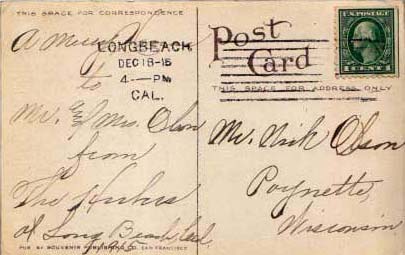 THIS SPACE FOR CORRESPONDENCE
A Merry
to
Mr. & Mrs. Olson
from
The
of Long Beach Cal.
PUB BY SOUVENIR PUBLISHING CO. SAN FRANCISCO
LONGBEACH
DEC 18-15
4--PM
CAL.
Post
Card
THIS SPACE FOR ADDRESS ONLY
U.S. POSTAGE
1 CENT 1
Mr. Nick Olson
Poynette,
Wisconsin.